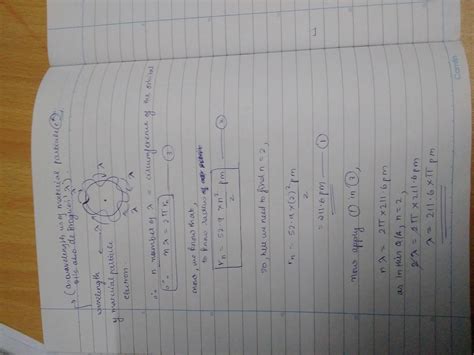 (a wavelength of material particle (e⁻),
it is also de Broglie λ)
wavelength
of material particle
electron
λ
λ
λ
∴ n number of λ = circumference of the orbital
∴ nλ = 2πrₙ — ③
now, we know that,
to know radius of
rₙ = 52.9 × n² pm — ②
Z
so, here we need to find n = 2,
rₙ = 52.9 × (2)² pm
Z
= 211.6 pm — ①
now apply ① in ③,
nλ = 2π × 211.6 pm
as in this Q/A, n = 2,
2λ = 2π × 211.6 × pm
λ = 211.6 × π pm